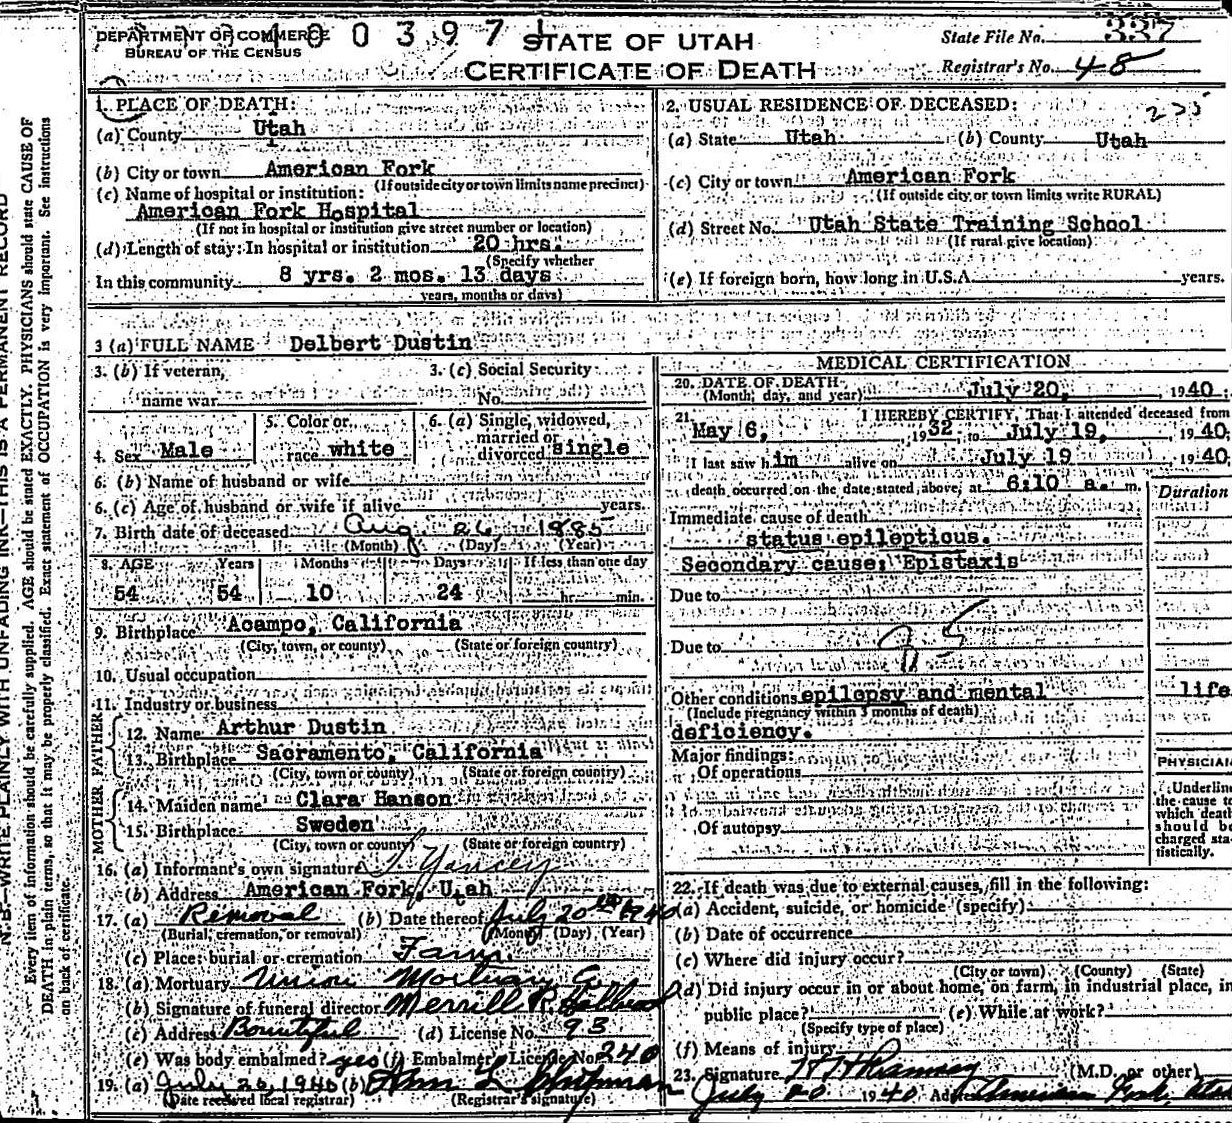 DEPARTMENT OF COMMERCE
BUREAU OF THE CENSUS
400397
STATE OF UTAH
CERTIFICATE OF DEATH
State File No. 337
Registrar's No. 48
1. PLACE OF DEATH:
(a) County Utah
(b) City or town American Fork
(If outside city or town limits name precinct)
(c) Name of hospital or institution:
American Fork Hospital
(If not in hospital or institution give street number or location)
(d) Length of stay: In hospital or institution 20 hrs.
(Specify whether
In this community 8 yrs. 2 mos. 13 days
years, months or days)
2. USUAL RESIDENCE OF DECEASED:
(a) State Utah (b) County Utah
(c) City or town American Fork
(If outside city or town limits write RURAL)
(d) Street No. Utah State Training School
(If rural give location)
(e) If foreign born, how long in U.S.A. years.
3 (a) FULL NAME Delbert Dustin
3. (b) If veteran,
name war
3. (c) Social Security
No.
4. Sex Male
5. Color or
race white
6. (a) Single, widowed,
married or
divorced single
6. (b) Name of husband or wife
6. (c) Age of husband or wife if alive years.
7. Birth date of deceased Aug. 26, 1885
(Month) (Day) (Year)
8. AGE Years Months Days If less than one day
54 54 10 24 hr. min.
9. Birthplace Acampo, California
(City, town, or county) (State or foreign country)
10. Usual occupation
11. Industry or business
FATHER
12. Name Arthur Dustin
13. Birthplace Sacramento, California
(City, town or county) (State or foreign country)
MOTHER
14. Maiden name Clara Hanson
15. Birthplace Sweden
(City, town or county) (State or foreign country)
16. (a) Informant's own signature Yancey
(b) Address American Fork, Utah
17. (a) Removal (b) Date thereof July 20th 1940
(Burial, cremation, or removal) (Month) (Day) (Year)
(c) Place: burial or cremation Farm.
18. (a) Mortuary Union Mortuary
(b) Signature of funeral director Merrill R.
(c) Address Bountiful (d) License No. 93
(e) Was body embalmed? yes (f) Embalmer's License No. 240
19. (a) July 20, 1940 (b) L. Chipman
(Date received local registrar) (Registrar's signature)
MEDICAL CERTIFICATION
20. DATE OF DEATH
(Month, day, and year) July 20, 1940.
21. I HEREBY CERTIFY, That I attended deceased from
May 6, 1932 to July 19, 1940.
I last saw him alive on July 19 1940.
death occurred on the date stated above, at 6:10 a. m.
Duration
Immediate cause of death
status epilepticus.
Secondary cause: Epistaxis
Due to
Due to
Other conditions epilepsy and mental life
(Include pregnancy within 3 months of death)
deficiency.
Major findings:
Of operations
Of autopsy
PHYSICIAN
Underline
the cause to
which death
should be
charged sta-
tistically.
22. If death was due to external causes, fill in the following:
(a) Accident, suicide, or homicide (specify)
(b) Date of occurrence
(c) Where did injury occur?
(City or town) (County) (State)
(d) Did injury occur in or about home, on farm, in industrial place, in
public place? (e) While at work?
(Specify type of place)
(f) Means of injury
23. Signature H H Ramsay (M.D. or other)
July 20 1940 Ad American Fork, Utah
N.B.—WRITE PLAINLY WITH UNFADING INK—THIS IS A PERMANENT RECORD
Every item of information should be carefully supplied. AGE should be stated EXACTLY. PHYSICIANS should state CAUSE OF
DEATH in plain terms, so that it may be properly classified. Exact statement of OCCUPATION is very important. See instructions
on back of certificate.